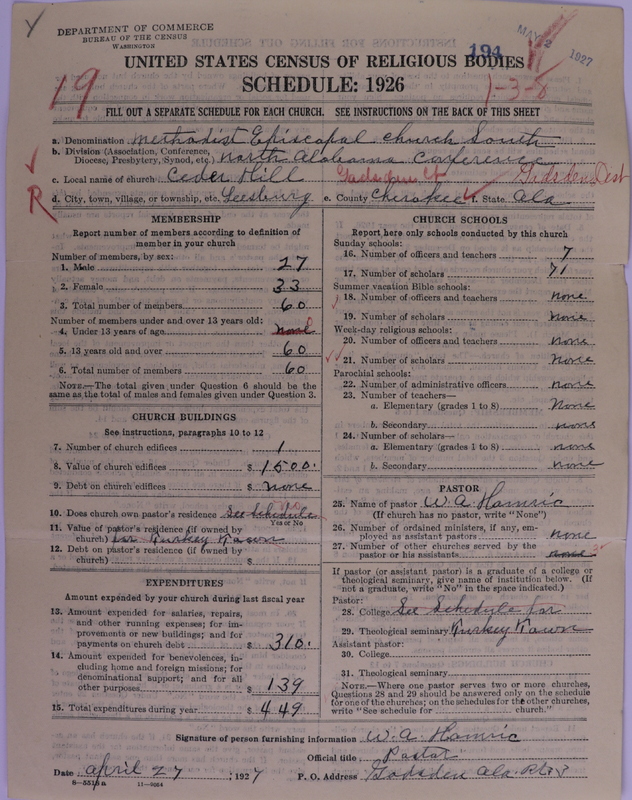 DEPARTMENT OF COMMERCE
BUREAU OF THE CENSUS
WASHINGTON
194
MAY 2 1927
UNITED STATES CENSUS OF RELIGIOUS BODIES
SCHEDULE: 1926
19
1-3-8
FILL OUT A SEPARATE SCHEDULE FOR EACH CHURCH. SEE INSTRUCTIONS ON THE BACK OF THIS SHEET
a. Denomination Methodist Episcopal Church South
b. Division (Association, Conference, Diocese, Presbytery, Synod, etc.) North Alabama Conference
c. Local name of church Ceder Hill Gadsden Ct Gadsden Dist
R
d. City, town, village, or township, etc. Leesburg e. County Cherokee f. State Ala
MEMBERSHIP
Report number of members according to definition of member in your church
Number of members, by sex:
1. Male 27
2. Female 33
3. Total number of members 60
Number of members under and over 13 years old:
4. Under 13 years of age none
5. 13 years old and over 60
6. Total number of members 60
NOTE.—The total given under Question 6 should be the same as the total of males and females given under Question 3.
CHURCH BUILDINGS
See instructions, paragraphs 10 to 12
7. Number of church edifices 1
8. Value of church edifices $ 1500.
9. Debt on church edifices $ none
10. Does church own pastor's residence See Schedule
Yes or No
11. Value of pastor's residence (if owned by church) for Turkey Town
12. Debt on pastor's residence (if owned by church) $
EXPENDITURES
Amount expended by your church during last fiscal year
13. Amount expended for salaries, repairs, and other running expenses; for improvements or new buildings; and for payments on church debt $ 310.
14. Amount expended for benevolences, including home and foreign missions; for denominational support; and for all other purposes $ 139
15. Total expenditures during year $ 449
CHURCH SCHOOLS
Report here only schools conducted by this church
Sunday schools:
16. Number of officers and teachers 7
17. Number of scholars 71
Summer vacation Bible schools:
18. Number of officers and teachers none
19. Number of scholars none
Week-day religious schools:
20. Number of officers and teachers none
21. Number of scholars none
Parochial schools:
22. Number of administrative officers none
23. Number of teachers—
a. Elementary (grades 1 to 8) None
b. Secondary none
24. Number of scholars—
a. Elementary (grades 1 to 8) none
b. Secondary none
PASTOR
25. Name of pastor W. A. Hamric
(If church has no pastor, write "None")
26. Number of ordained ministers, if any, employed as assistant pastors none
27. Number of other churches served by the pastor or his assistants none 3
If pastor (or assistant pastor) is a graduate of a college or theological seminary, give name of institution below. (If not a graduate, write "No" in the space indicated.)
Pastor:
28. College See Schedule for
29. Theological seminary Turkey Town
Assistant pastor:
30. College
31. Theological seminary
NOTE.—Where one pastor serves two or more churches, Questions 28 and 29 should be answered only on the schedule for one of the churches; on the schedules for the other churches, write "See schedule for church."
Signature of person furnishing information W. A. Hamric
Official title Pastor
Date april 27, 1927 P. O. Address Gadsden Ala. Rt 3
8-551a 11-9064